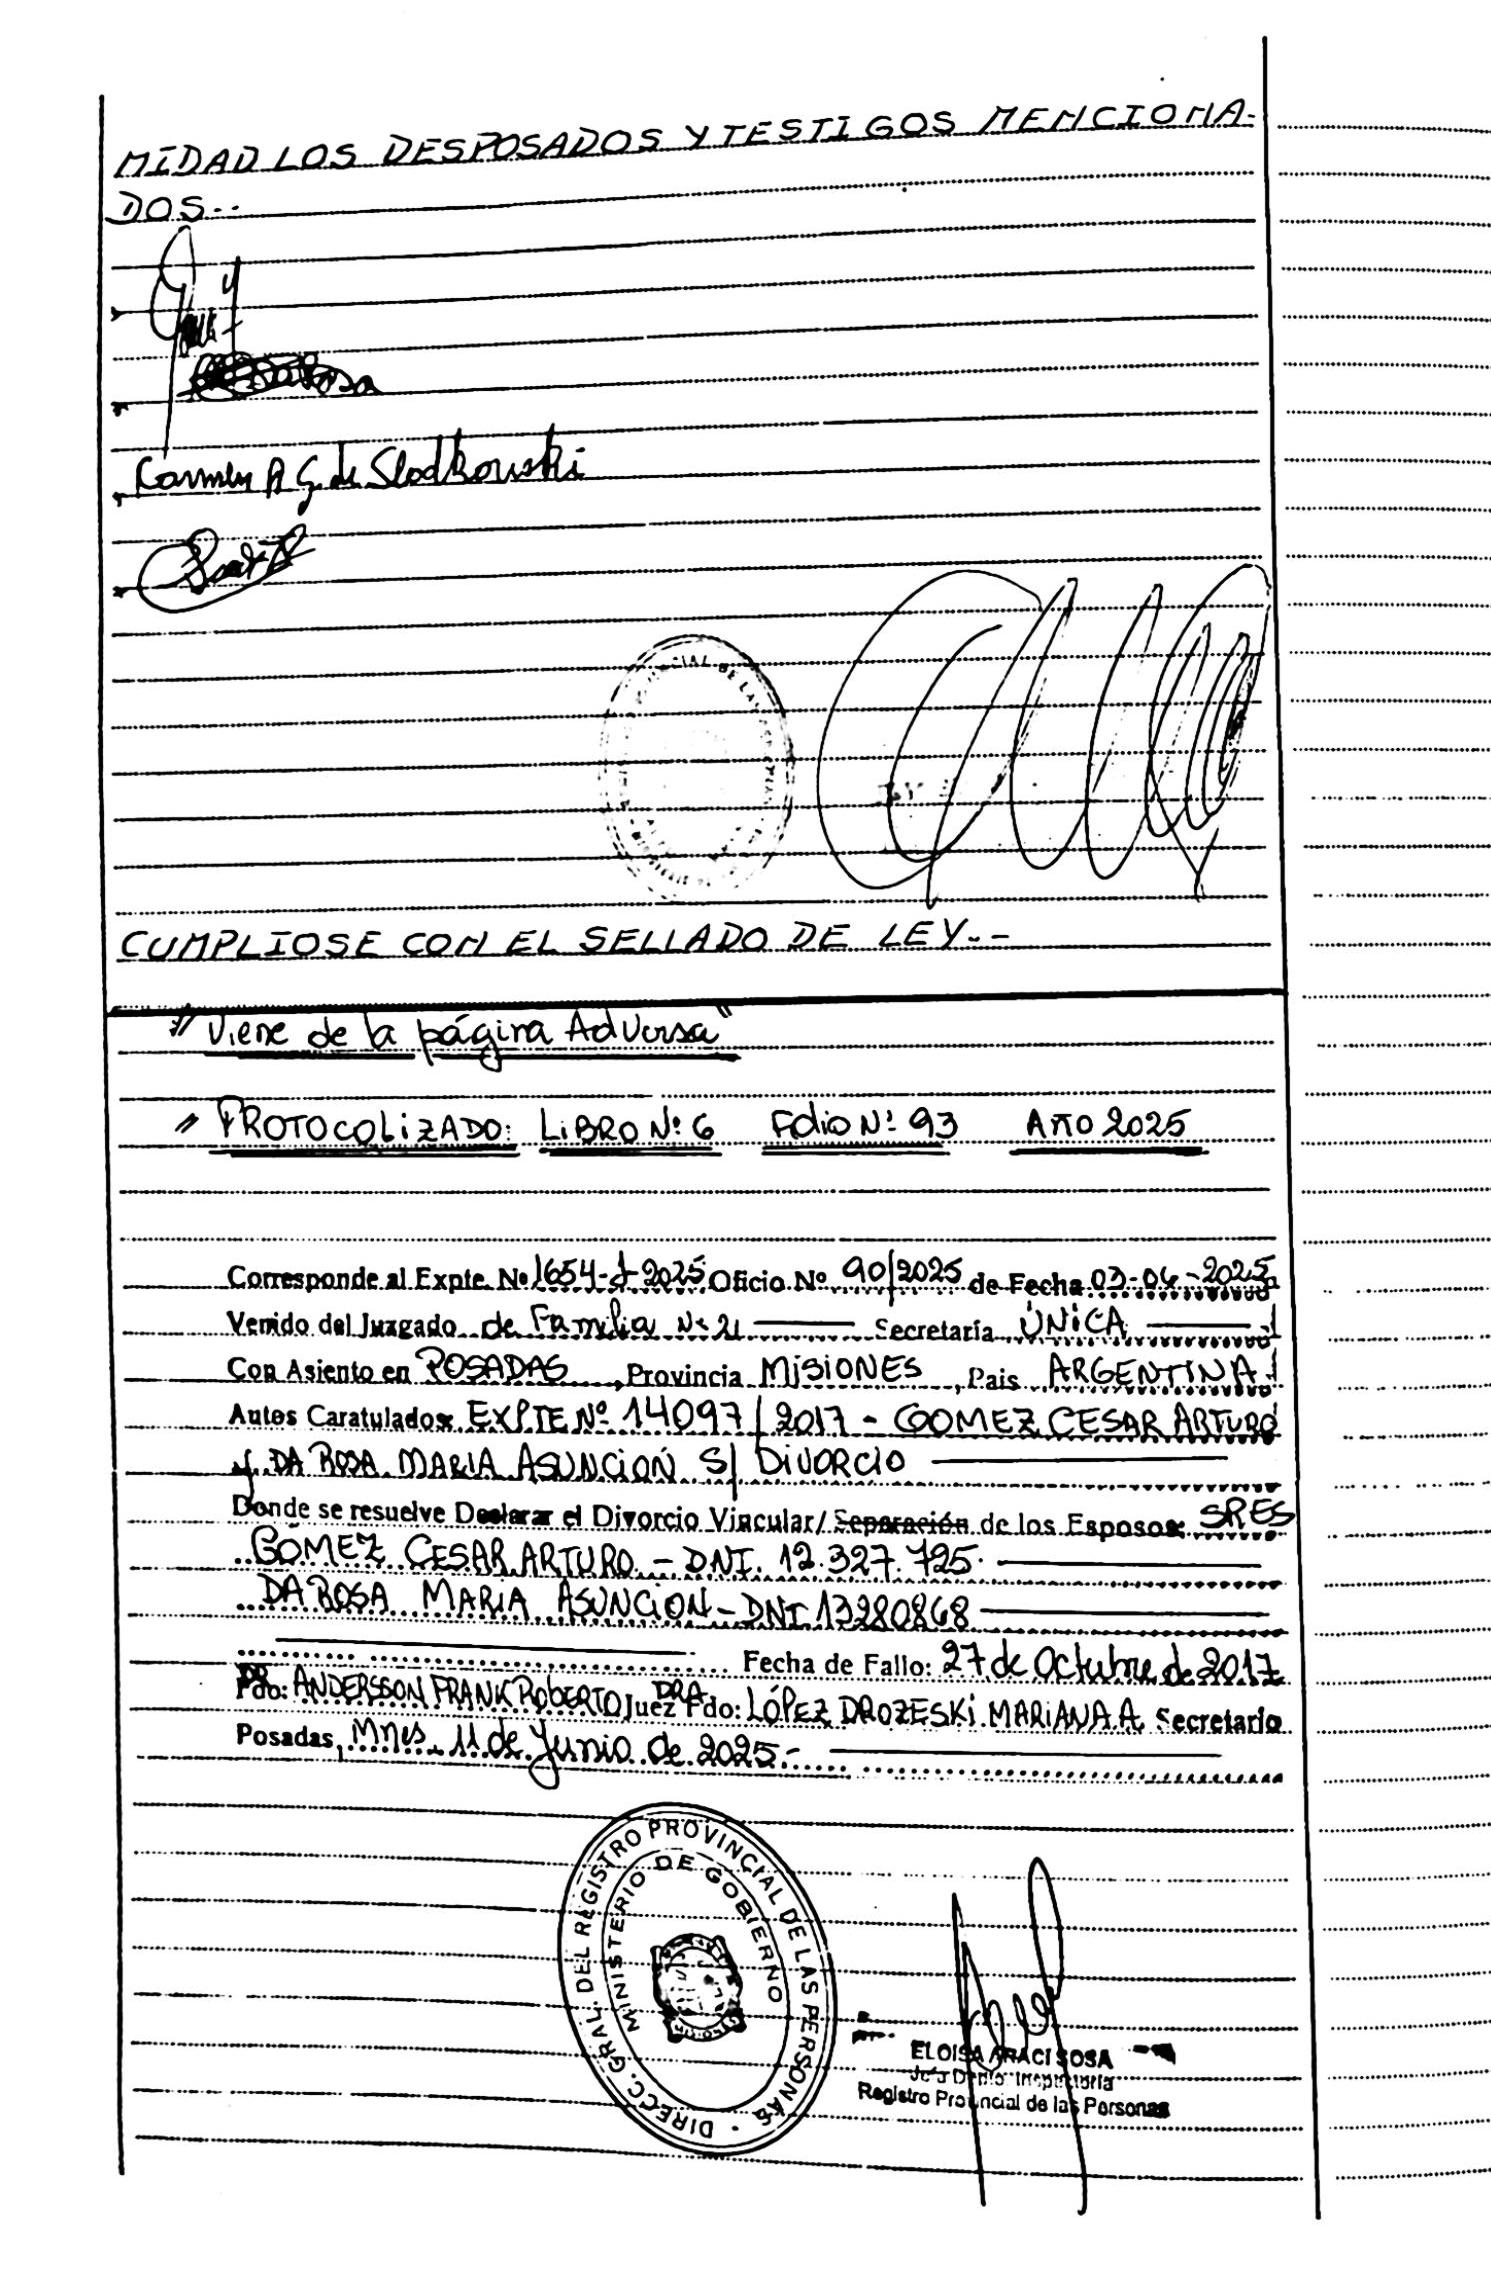 MIDAD LOS DESPOSADOS Y TESTIGOS MENCIONA-
DOS.-
Carmen A G. de Slodkowski
CUMPLIOSE CON EL SELLADO DE LEY.-
"Viene de la página Adversa"
" PROTOCOLIZADO: LIBRO Nº 6 Folio Nº 93 AÑO 2025
Corresponde al Expte. Nº 1654-J-2025 Oficio Nº 90/2025 de Fecha 03-06-2025
Venido del Juzgado de Familia Nº 2 Secretaría ÚNICA
Con Asiento en POSADAS, Provincia MISIONES, Pais ARGENTINA
Autos Caratulados: EXPTE Nº 14097/2017 - GOMEZ CESAR ARTURO
y DA ROSA MARIA ASUNCIÓN S/ DIVORCIO
Donde se resuelve Declarar el Divorcio Vincular/ Separación de los Esposos: SRES
GOMEZ CESAR ARTURO - DNI. 12.327.725.
DA ROSA MARIA ASUNCION - DNI 13280868
Fecha de Fallo: 27 de Octubre de 2017
DR. Fdo: ANDERSSON FRANK ROBERTO Juez DRA Fdo: LÓPEZ DROZESKI MARIANA A. Secretario
Posadas, Mnes. 11 de Junio de 2025.-
DIRECC. GRAL. DEL REGISTRO PROVINCIAL DE LAS PERSONAS
MINISTERIO DE GOBIERNO
ELOISA ARACI SOSA
Registro Provincial de las Personas